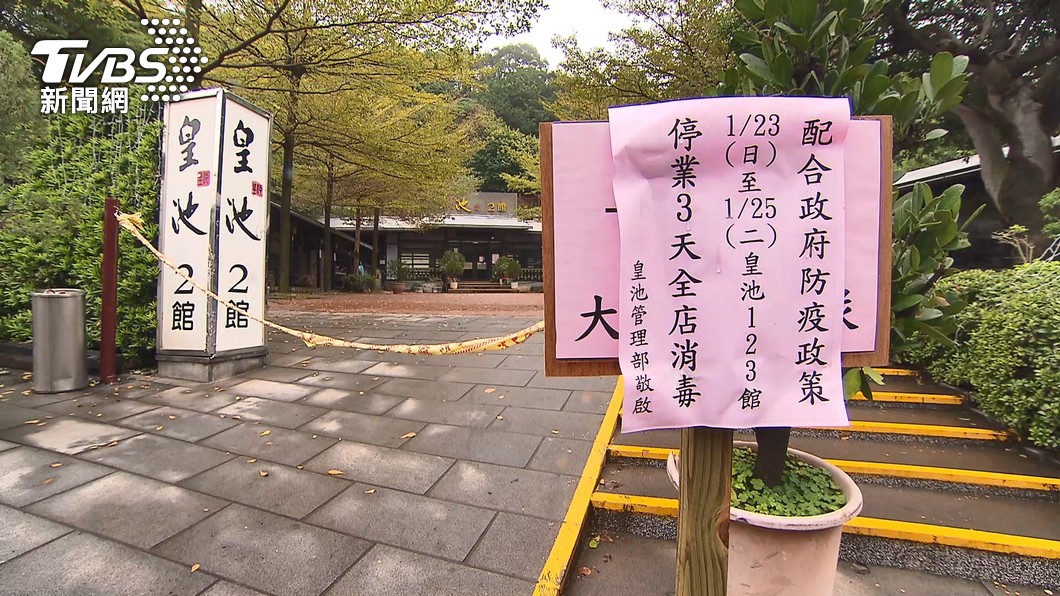 TVBS
新聞網
皇池2館
皇池2館
池2館
配合政府防疫政策
1/23(日)至1/25(二)皇池123館
停業3天全店消毒
皇池管理部敬啟
大